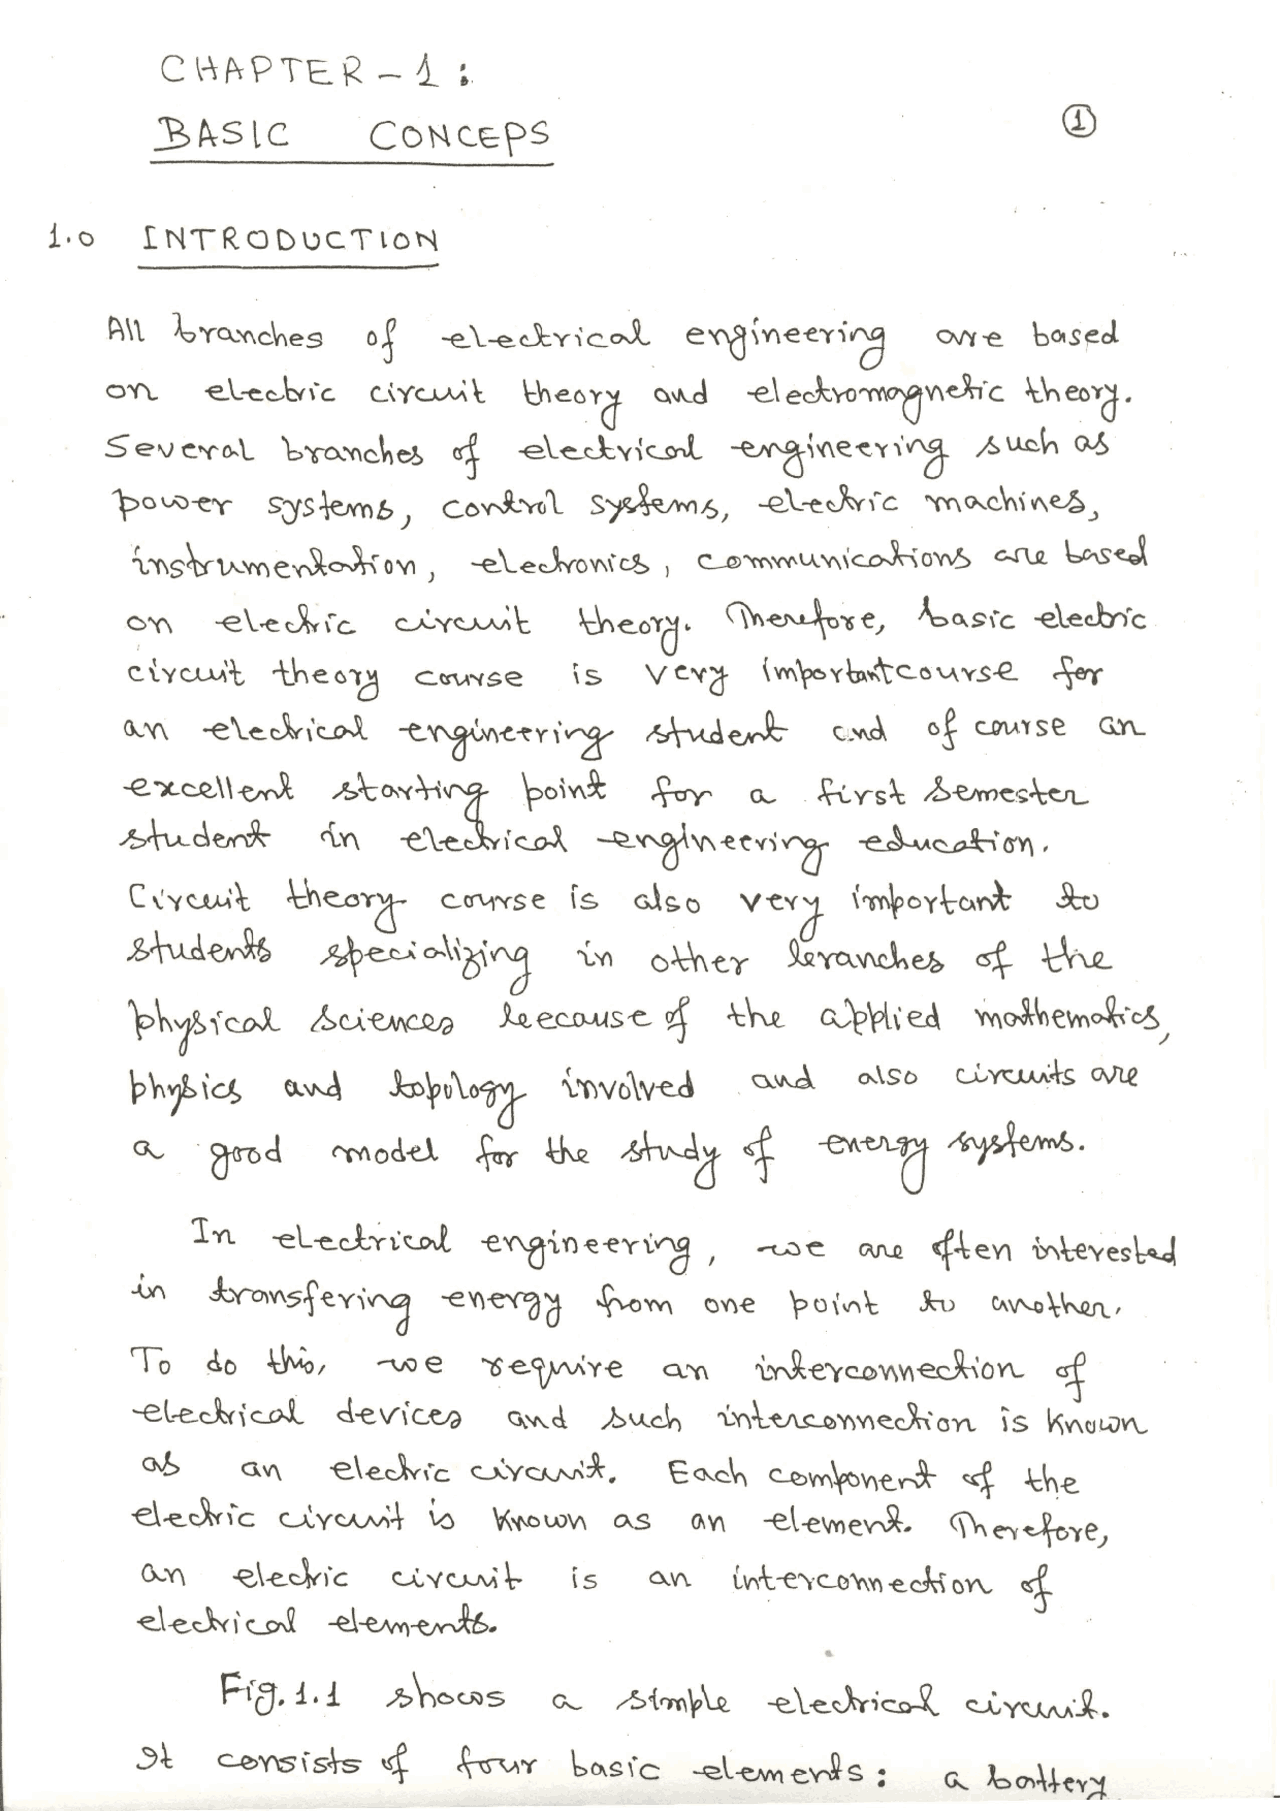 CHAPTER-1:
BASIC CONCEPS
①
1.0 INTRODUCTION
All branches of electrical engineering are based
on electric circuit theory and electromagnetic theory.
Several branches of electrical engineering such as
power systems, control systems, electric machines,
instrumentation, electronics, communications are based
on electric circuit theory. Therefore, basic electric
circuit theory course is very important course for
an electrical engineering student and of course an
excellent starting point for a first semester
student in electrical engineering education.
Circuit theory course is also very important to
students specializing in other branches of the
physical sciences because of the applied mathematics,
physics and topology involved and also circuits are
a good model for the study of energy systems.
In electrical engineering, we are often interested
in transfering energy from one point to another.
To do this, we require an interconnection of
electrical devices and such interconnection is known
as an electric circuit. Each component of the
electric circuit is known as an element. Therefore,
an electric circuit is an interconnection of
electrical elements.
Fig. 1.1 shows a simple electrical circuit.
It consists of four basic elements: a battery